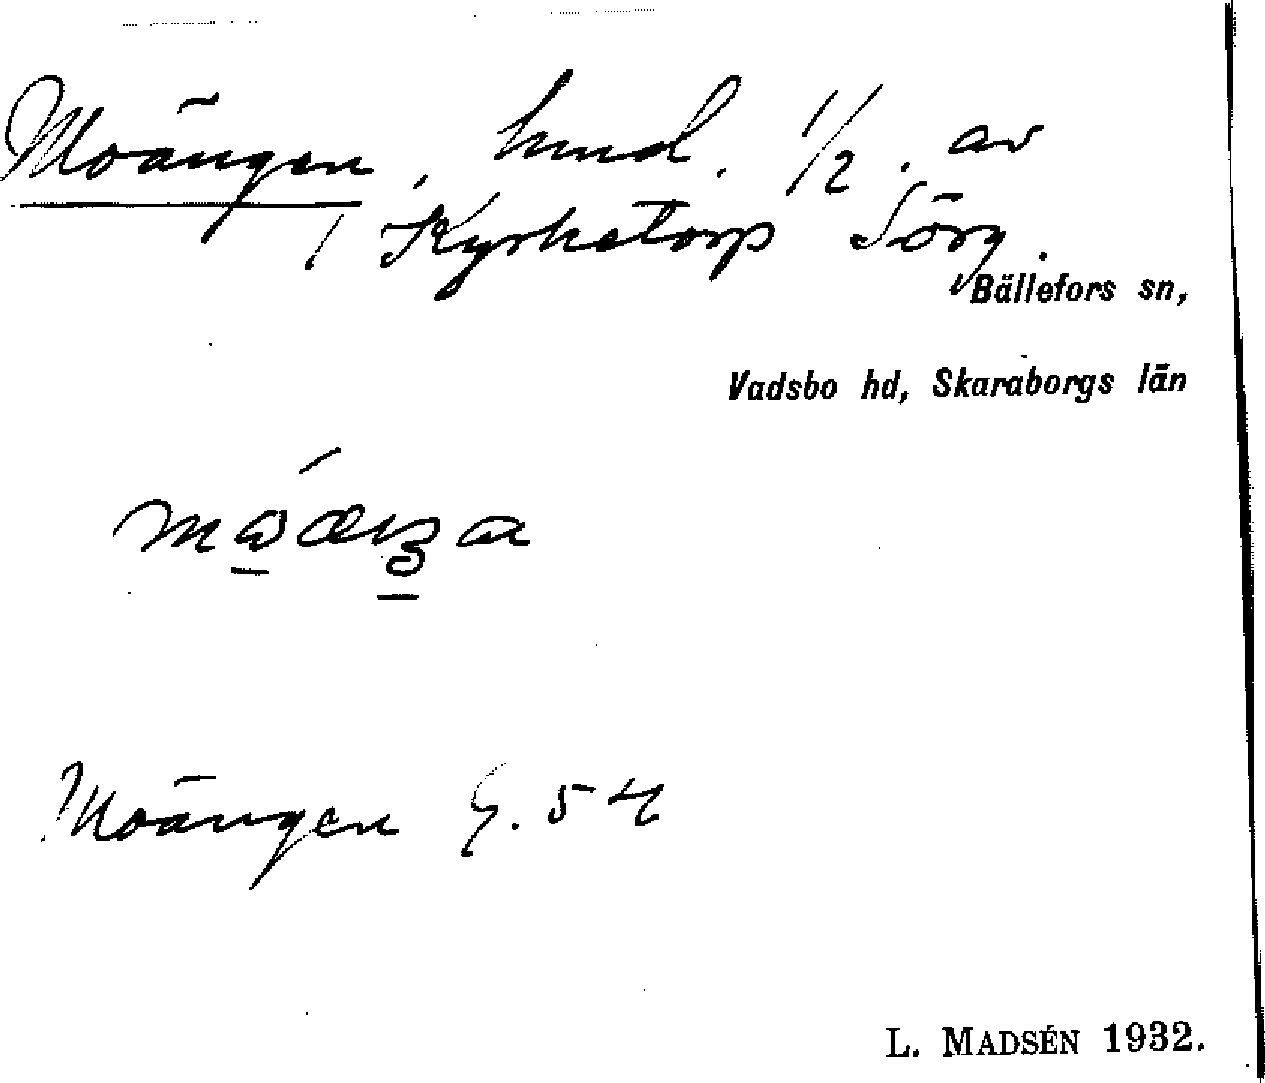 Moängen, hmd. 1/2. av
Kyrketorp Sörg.
Bällefors sn,
Vadsbo hd, Skaraborgs län
Moängen G. 54
L. MADSÉN 1932.